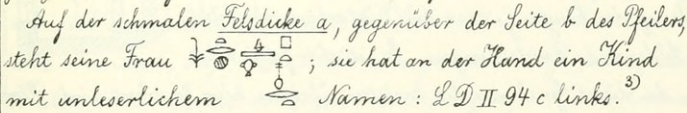 Auf der schmalen Felsdicke a, gegenüber der Seite b des Pfeilers,
steht seine Frau ; sie hat an der Hand ein Kind
mit unleserlichem Namen : L D II 94 c links. 3)